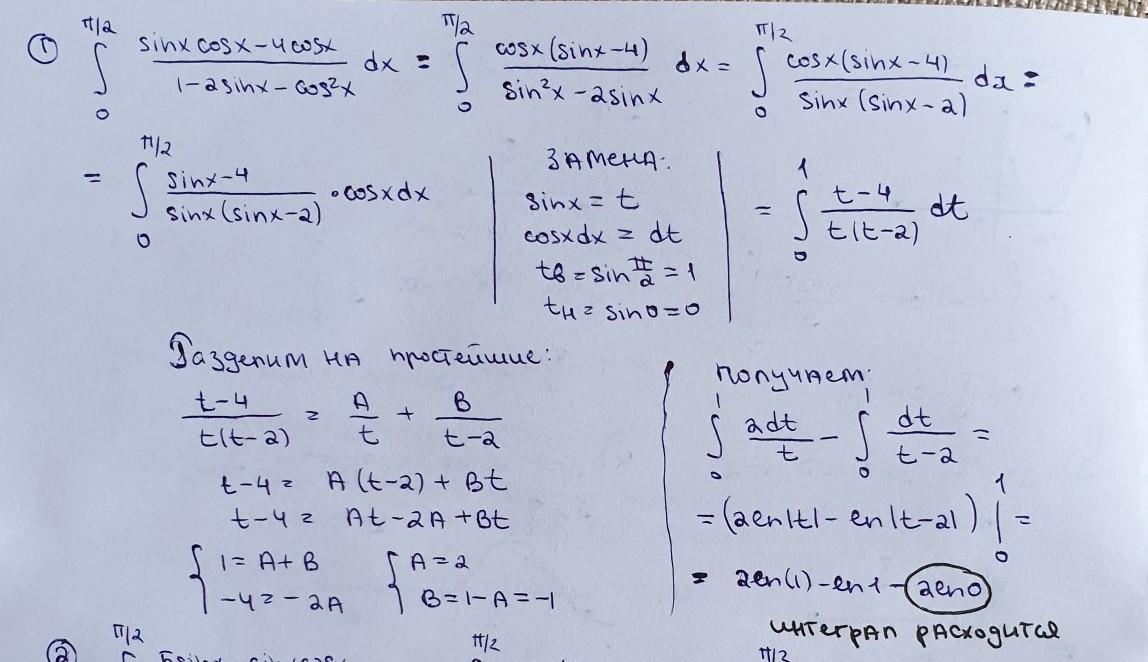 ① ∫₀^{π/2} (sinx cosx – 4cosx)/(1–2sinx – cos²x) dx = ∫₀^{π/2} cosx(sinx–4)/(sin²x – 2sinx) dx = ∫₀^{π/2} cosx(sinx–4)/(sinx(sinx–2)) dx =
= ∫₀^{π/2} (sinx–4)/(sinx(sinx–2)) · cosxdx
ЗАМЕНА:
sinx = t
cosxdx = dt
tв = sin π/2 = 1
tн = sin0 = 0
= ∫₀¹ (t–4)/(t(t–2)) dt
Разделим на простейшие:
(t–4)/(t(t–2)) = A/t + B/(t–2)
t–4 = A(t–2) + Bt
t–4 = At–2A+Bt
{ 1 = A+B { A=2
–4 = –2A B=1–A=–1
получаем:
∫₀¹ 2dt/t – ∫₀¹ dt/(t–2) =
= (2ln|t| – ln|t–2|) |₀¹ =
= 2ln(1) – ln1 – 2ln0
интеграл расходится
② π/2 π/2 π/2